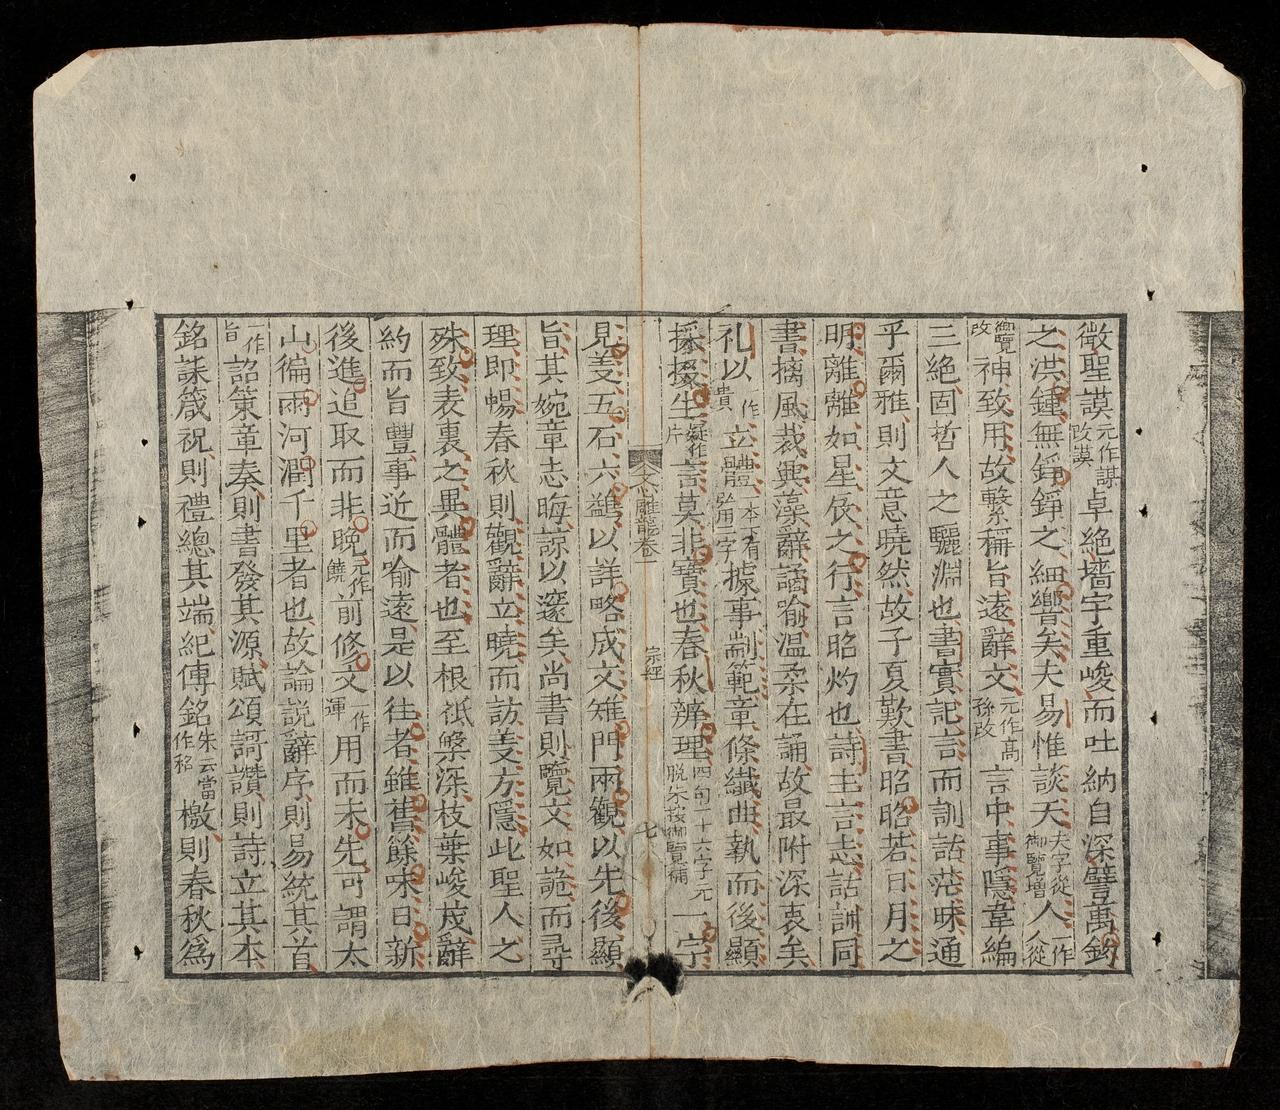 徴聖謨元作謀改謨卓絶墻宇重峻而吐納自深譬萬鈞
之洪鍾無錚錚之細響矣夫易惟談天夫字從御覽增人一作人從
御覽改神致用故繫稱旨遠辭文元作高孫改言中事隱韋編
三絶固哲人之驪淵也書實記言而訓詁茫昧通
乎爾雅則文意曉然故子夏歎書昭昭若日月之
明離離如星辰之行言昭灼也詩主言志詁訓同
書摛風裁興藻辭譎喻温柔在誦故最附深衷矣
礼以貴作立體一本下有弘用二字據事剬範章條纖曲執而後顯
採掇生疑作片言莫非寶也春秋辨理四句二十六字元脱朱按御覽補一字
文心雕龍卷一
宗經
七
見義五石六鷁以詳略成文雉門兩觀以先後顯
旨其婉章志晦諒以邃矣尚書則覽文如詭而尋
理即暢春秋則觀辭立曉而訪義方隱此聖人之
殊致表裏之異體者也至根柢槃深枝葉峻茂辭
約而旨豐事近而喻遠是以往者雖舊餘味日新
後進追取而非晚元作曉前修文一作運用而未先可謂太
山徧雨河潤千里者也故論説辭序則易統其首
一作旨詔策章奏則書發其源賦頌謌讚則詩立其本
銘誄箴祝則禮總其端紀傳銘朱云當作移檄則春秋爲